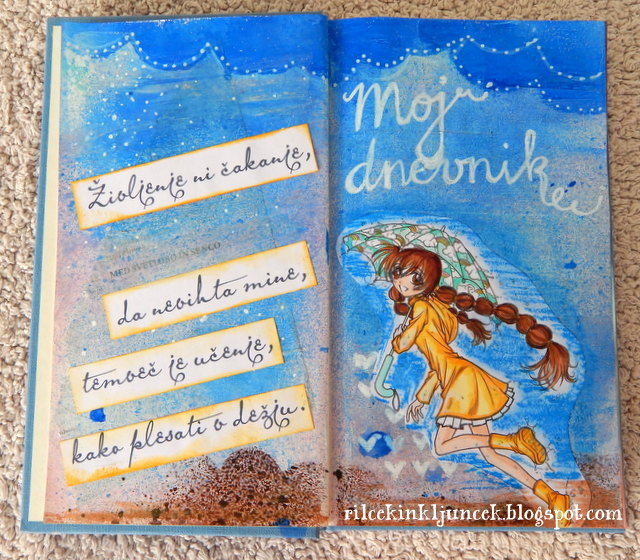 Življenje ni čakanje,
MED SVETLOBO IN SENCO
da nevihta mine,
temveč je učenje,
kako plesati v dežju.
Moj
dnevnik
rilcekinkljuncek.blogspot.com